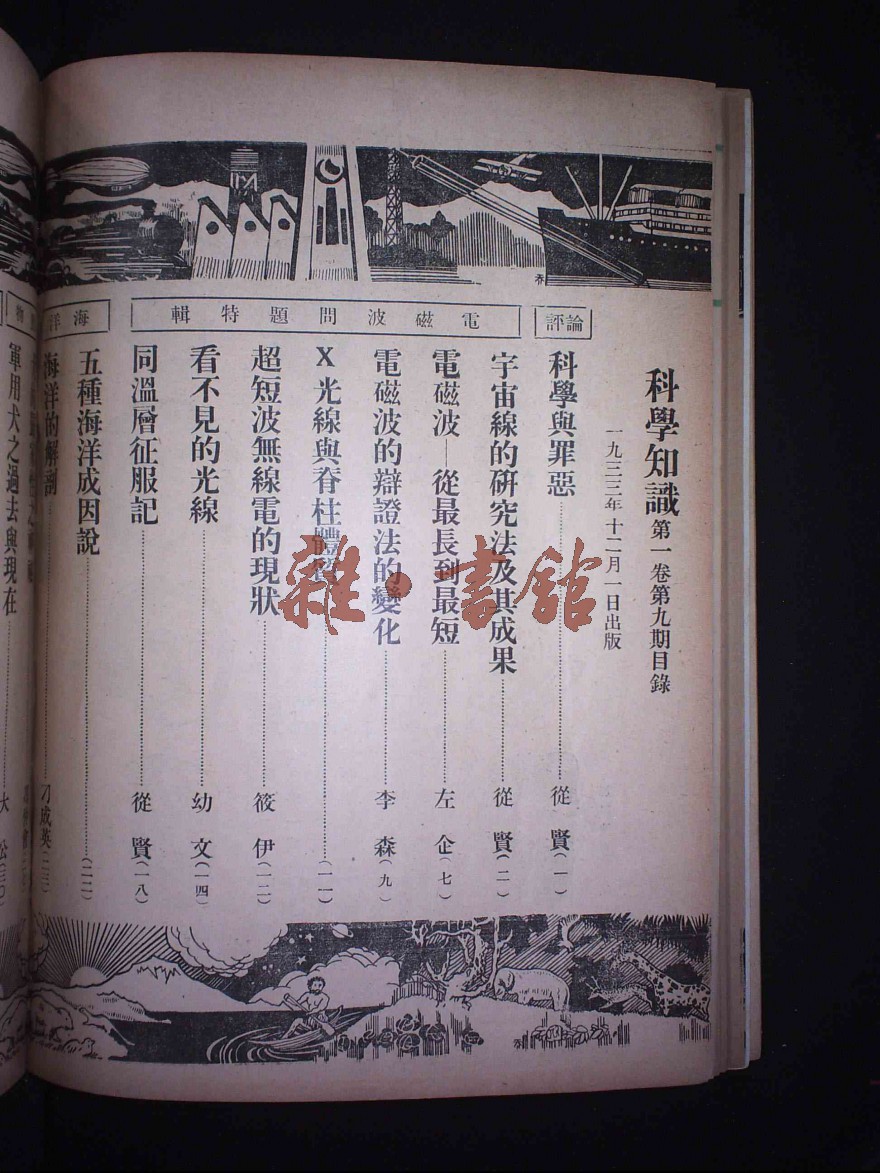 科學知識 第一卷第九期目錄
一九三三年十二月一日出版
評論
科學與罪惡 從賢（一）
電磁波問題特輯
宇宙線的研究法及其成果 從賢（二）
電磁波—從最長到最短 左企（七）
電磁波的辯證法的變化 李森（九）
X光線與脊柱體質（一一）
超短波無線電的現狀 筱伊（一二）
看不見的光線 幼文（一四）
同溫層征服記 從賢（一八）
海洋
五種海洋成因說（二二）
海洋的解剖 刁成英（二三）
物
軍用犬之過去與現在 大公（三〇）
雜·書館